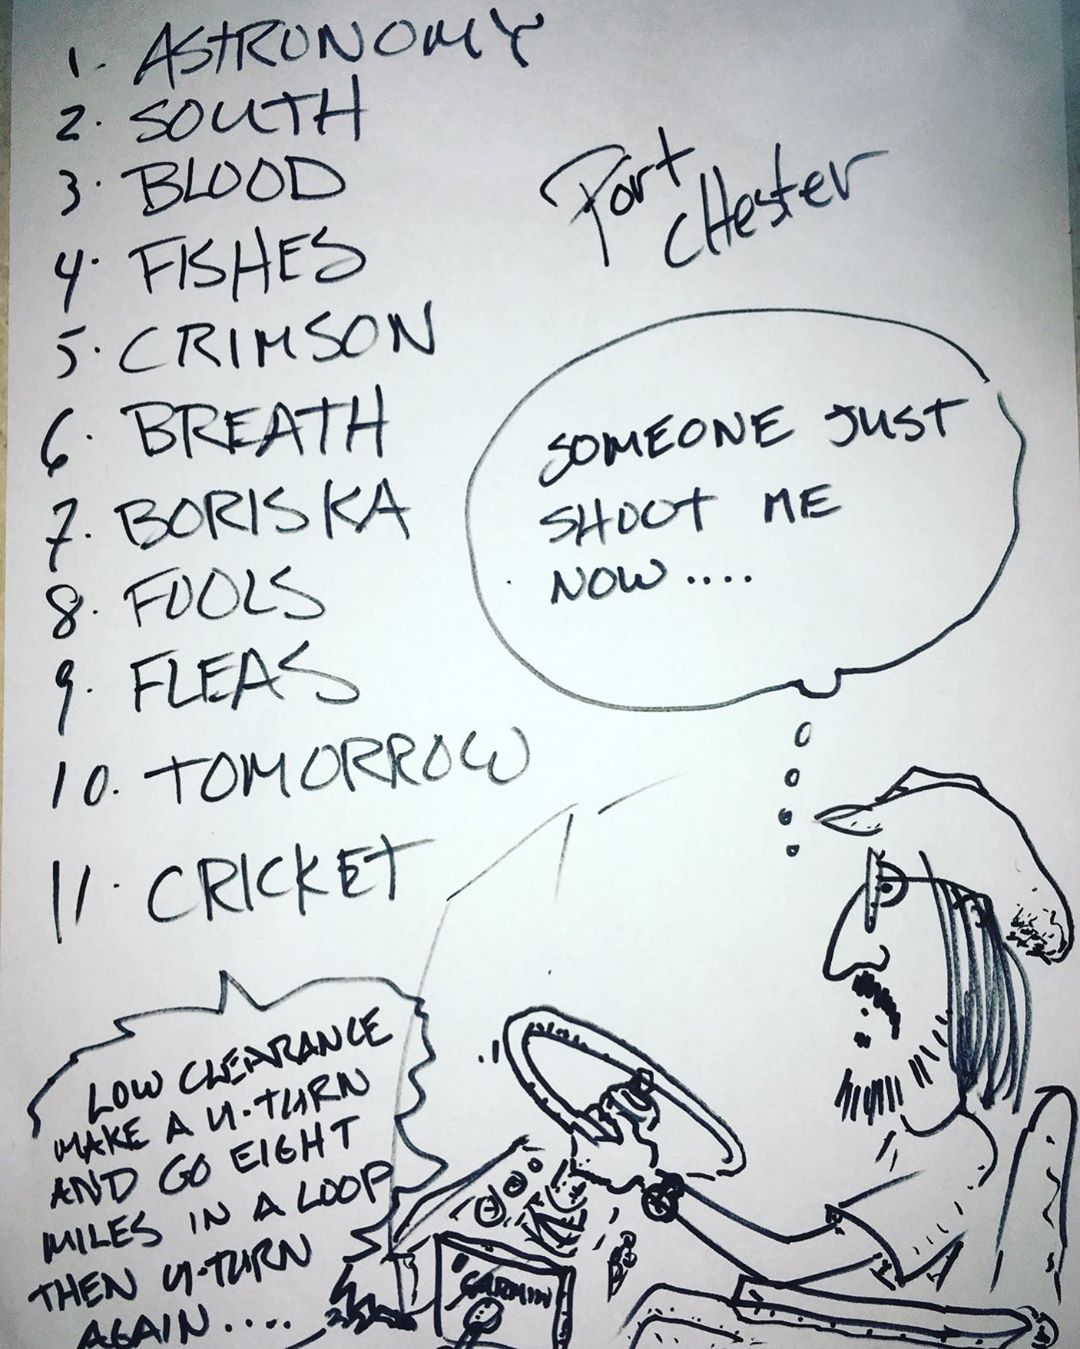 1. ASTRONOMY
2. SOUTH
3. BLOOD
4. FISHES
5. CRIMSON
6. BREATH
7. BORISKA
8. FOOLS
9. FLEAS
10. TOMORROW
11. CRICKET
Port
CHester
SOMEONE JUST
SHOOT ME
NOW....
LOW CLEARANCE
MAKE A U-TURN
AND GO EIGHT
MILES IN A LOOP
THEN U-TURN
AGAIN....
GARMIN